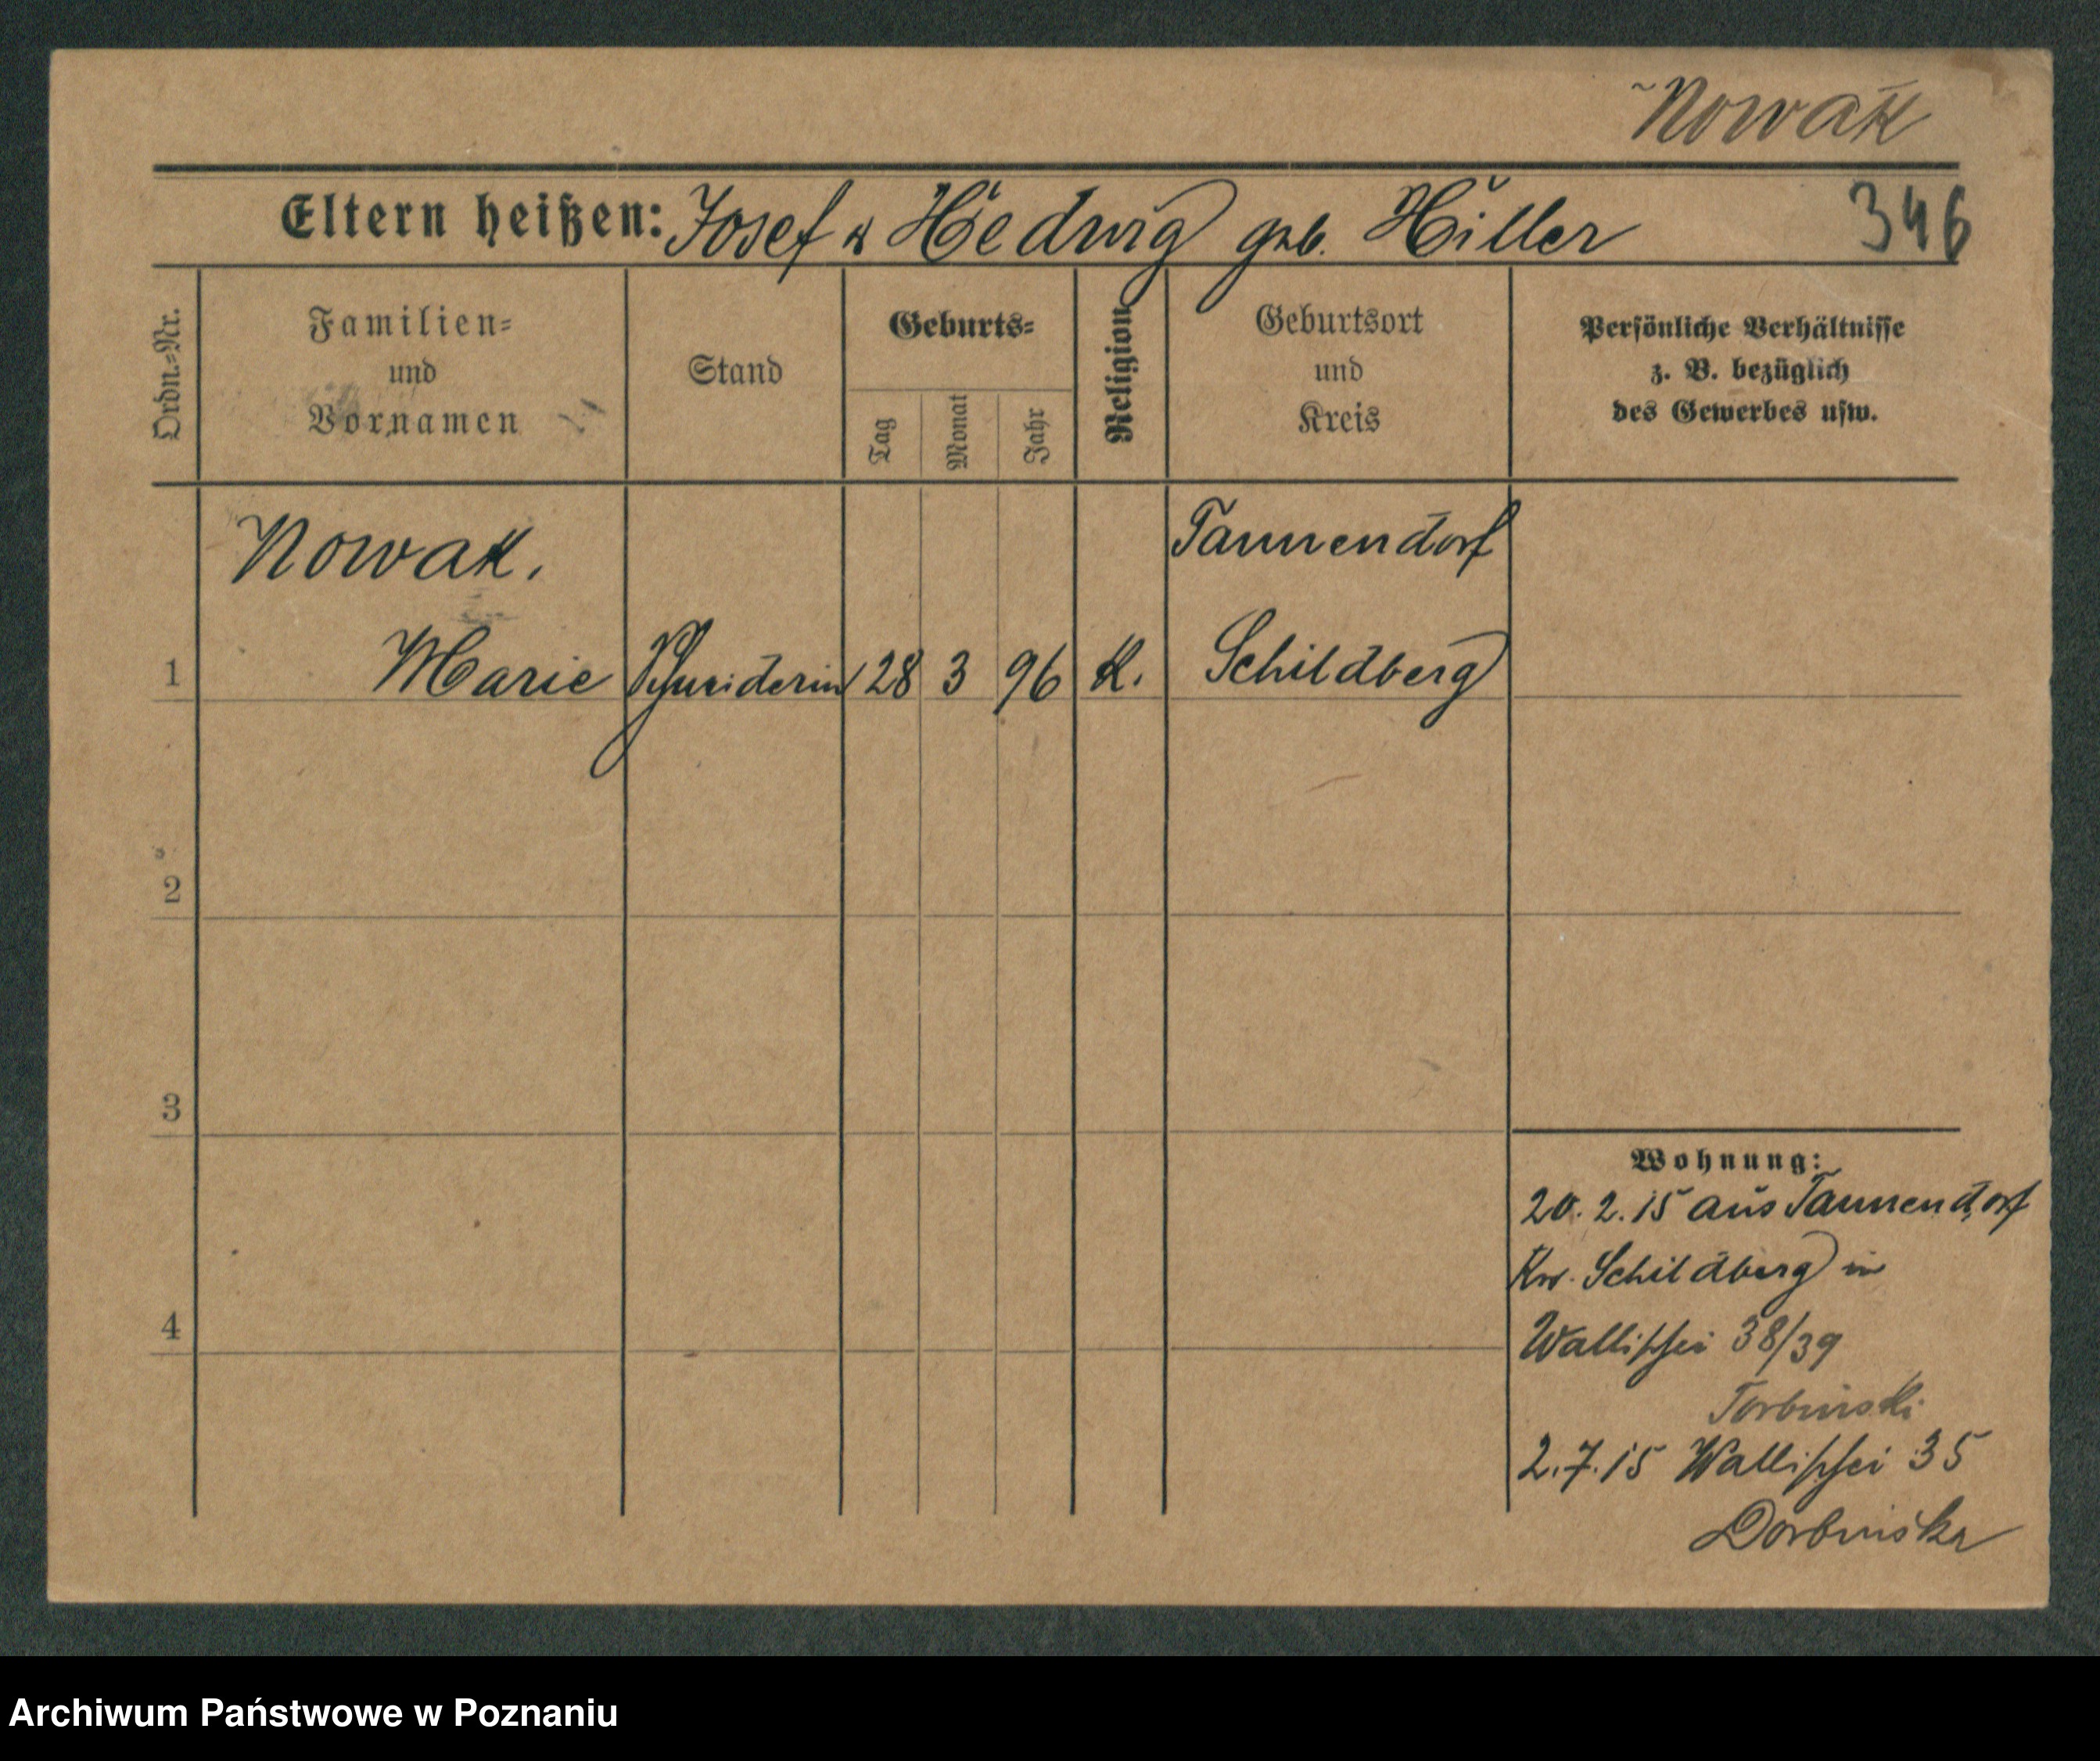 Nowak
Eltern heißen: Josef u Hedwig geb. Hiller 346
Ordn.-Nr.
Familien-
und
Vornamen
Stand
Geburts-
Tag
Monat
Jahr
Religion
Geburtsort
und
Kreis
Persönliche Verhältnisse
z. B. bezüglich
des Gewerbes usw.
Nowak. Tannendorf
1 Marie Schneiderin 28 3 96 K. Schildberg
2
3
Wohnung:
20. 2. 15 aus Tannendorf
Krs. Schildberg in
4
Wallischei 38/39
Torbinski
2. 7. 15 Wallischei 35
Dorbinska
Archiwum Państwowe w Poznaniu